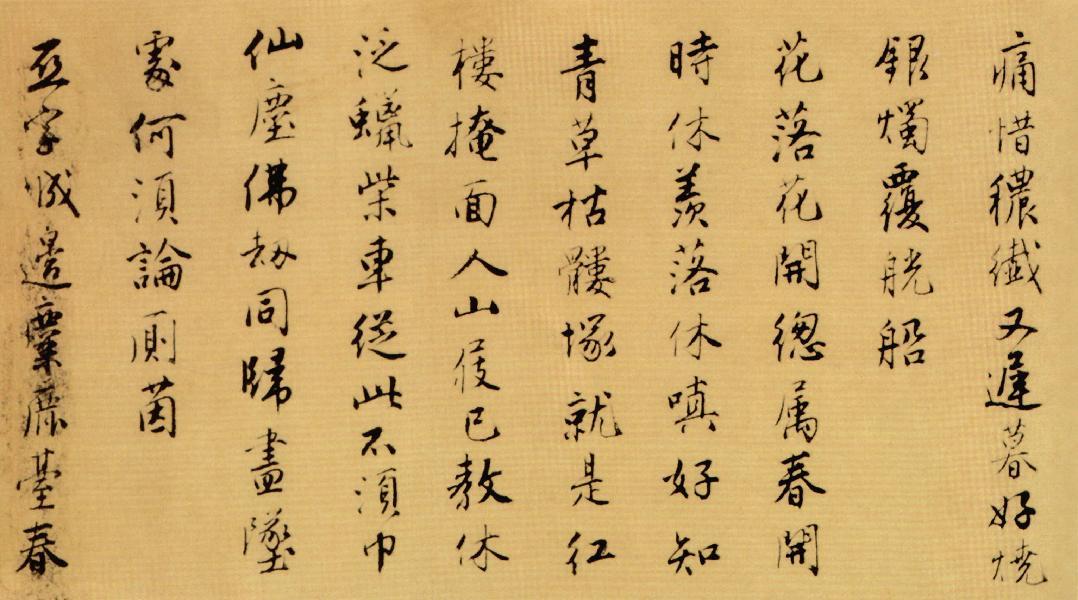 痛惜穠纖又遲暮好燒
銀燭覆觥船
花落花開總属春開
時休羨落休嗔好知
青草枯髅塚就是紅
樓掩面人山屐已教休
泛蠟柴車從此不須巾
仙塵佛劫同歸盡墜
處何須論厠茵
亞字城邊麋鹿臺春